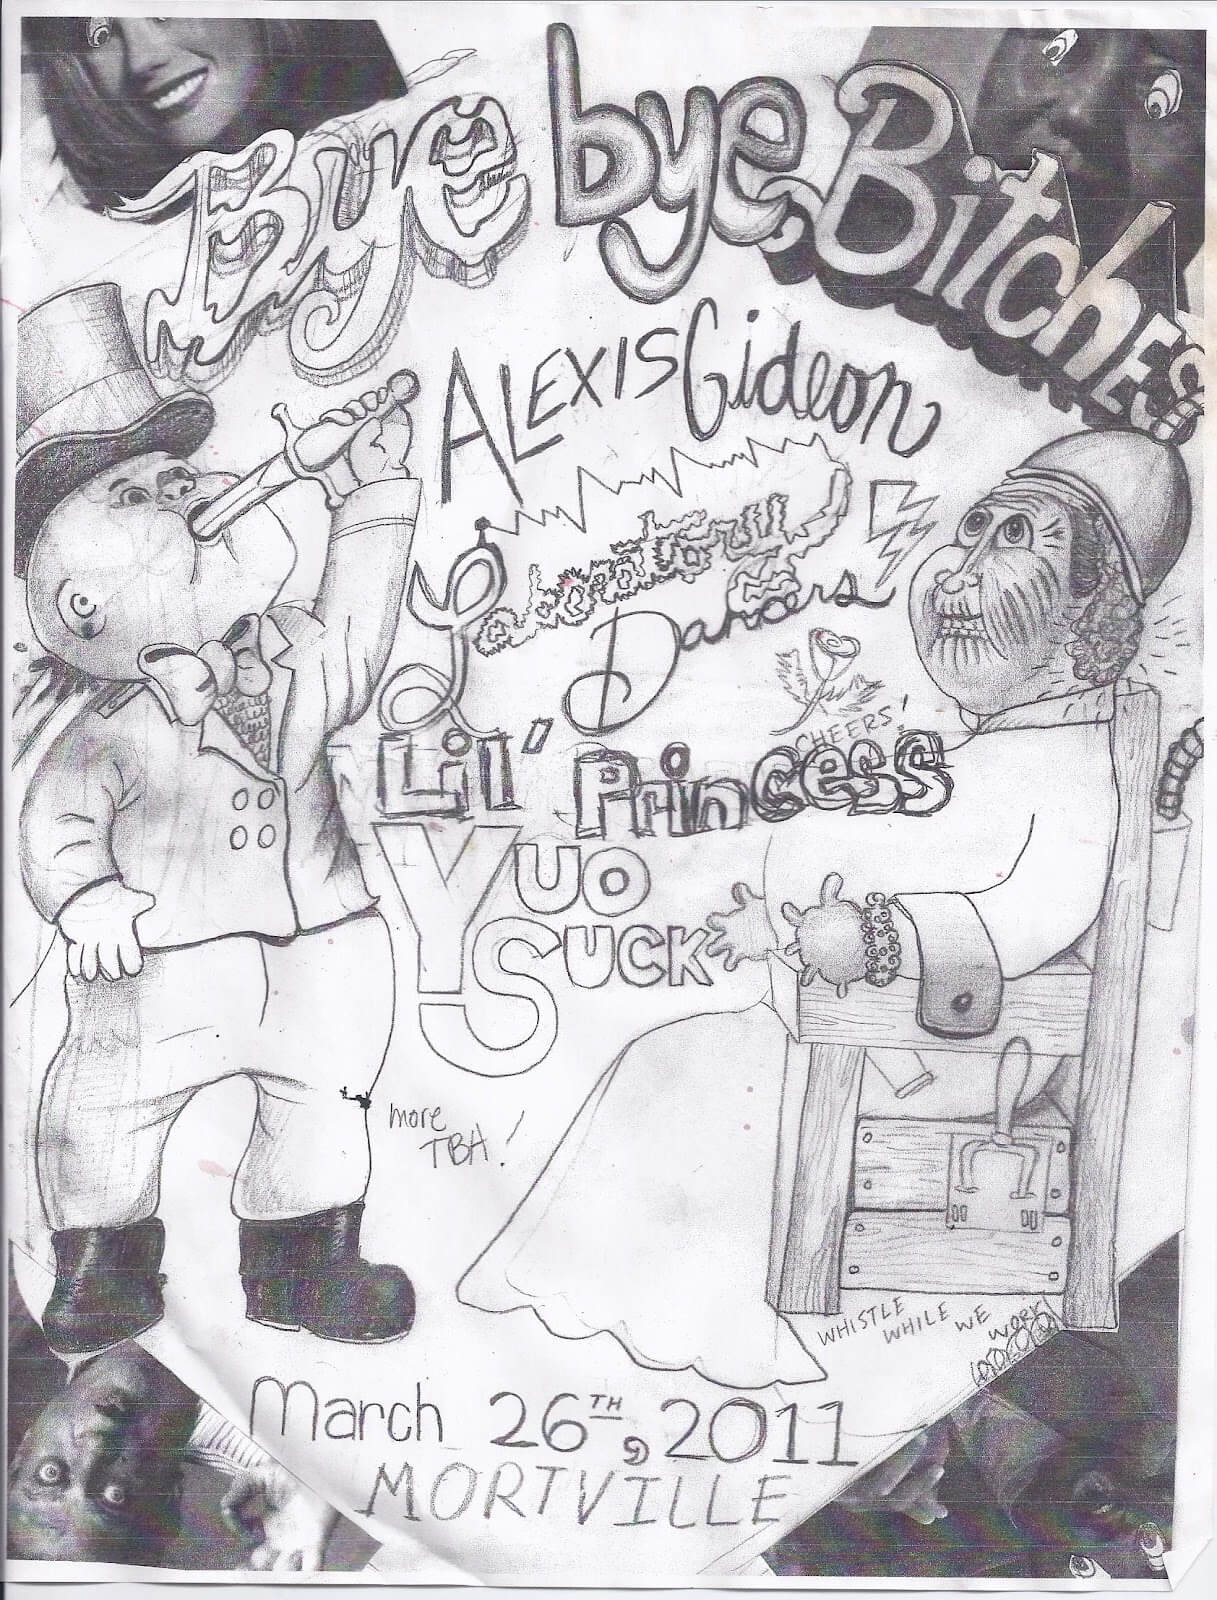 Bye bye Bitches
ALEXIS Gideon
Laboratory
Dancers
CHEERS!
Lil' Princess
YUO
SUCK
more
TBA!
WHISTLE
WHILE WE
WORK!
March 26TH, 2011
MORTVILLE